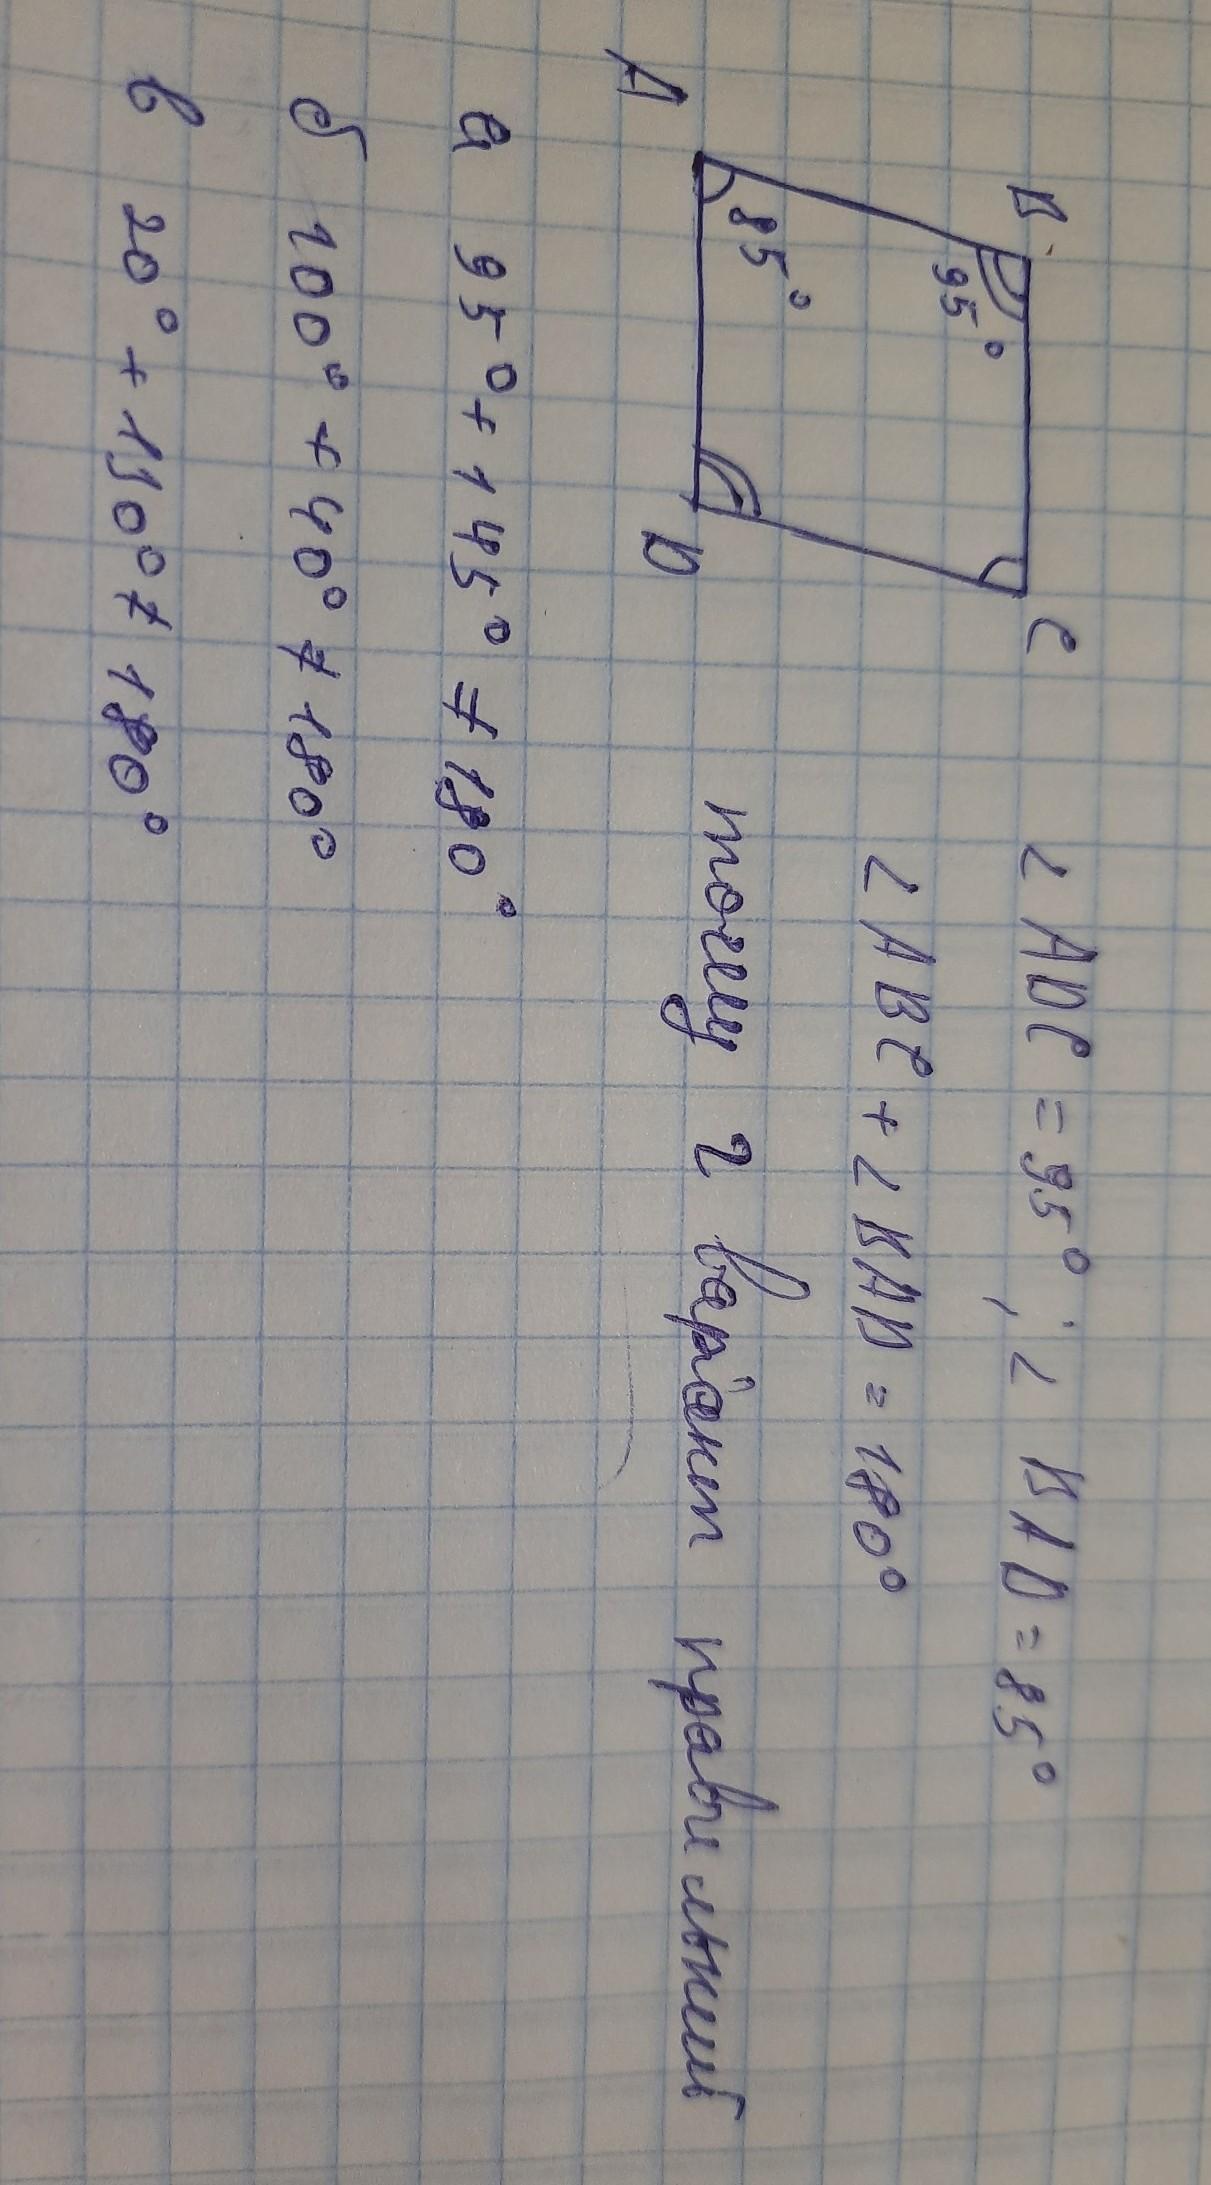 B C
95°
85°
A D
∠ ADC = 95°, ∠ BAD = 85°
∠ ABC + ∠ BAD = 180°
тому г варіант правильний
а 95° + 145° ≠ 180°
б 100° + 40° ≠ 180°
в 20° + 110° ≠ 180°